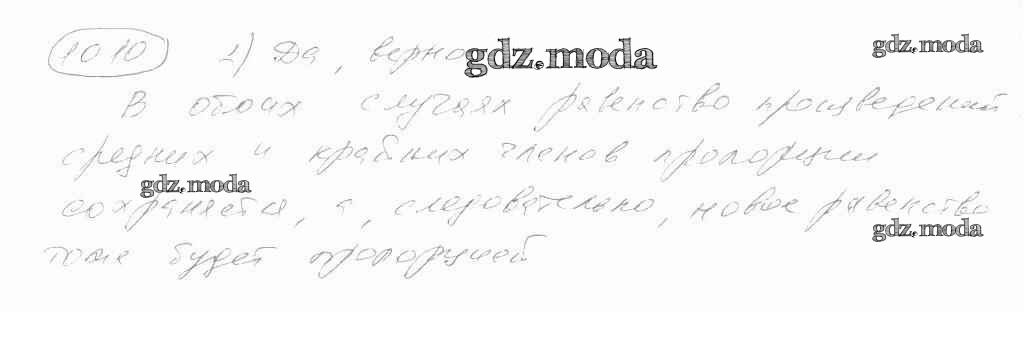 1010 1) Да, верно gdz.moda gdz.moda
В обоих случаях равенство произведений
средних и крайних членов пропорции
gdz.moda
сохраняется, а, следовательно, новое равенство
gdz.moda
тоже будет пропорцией